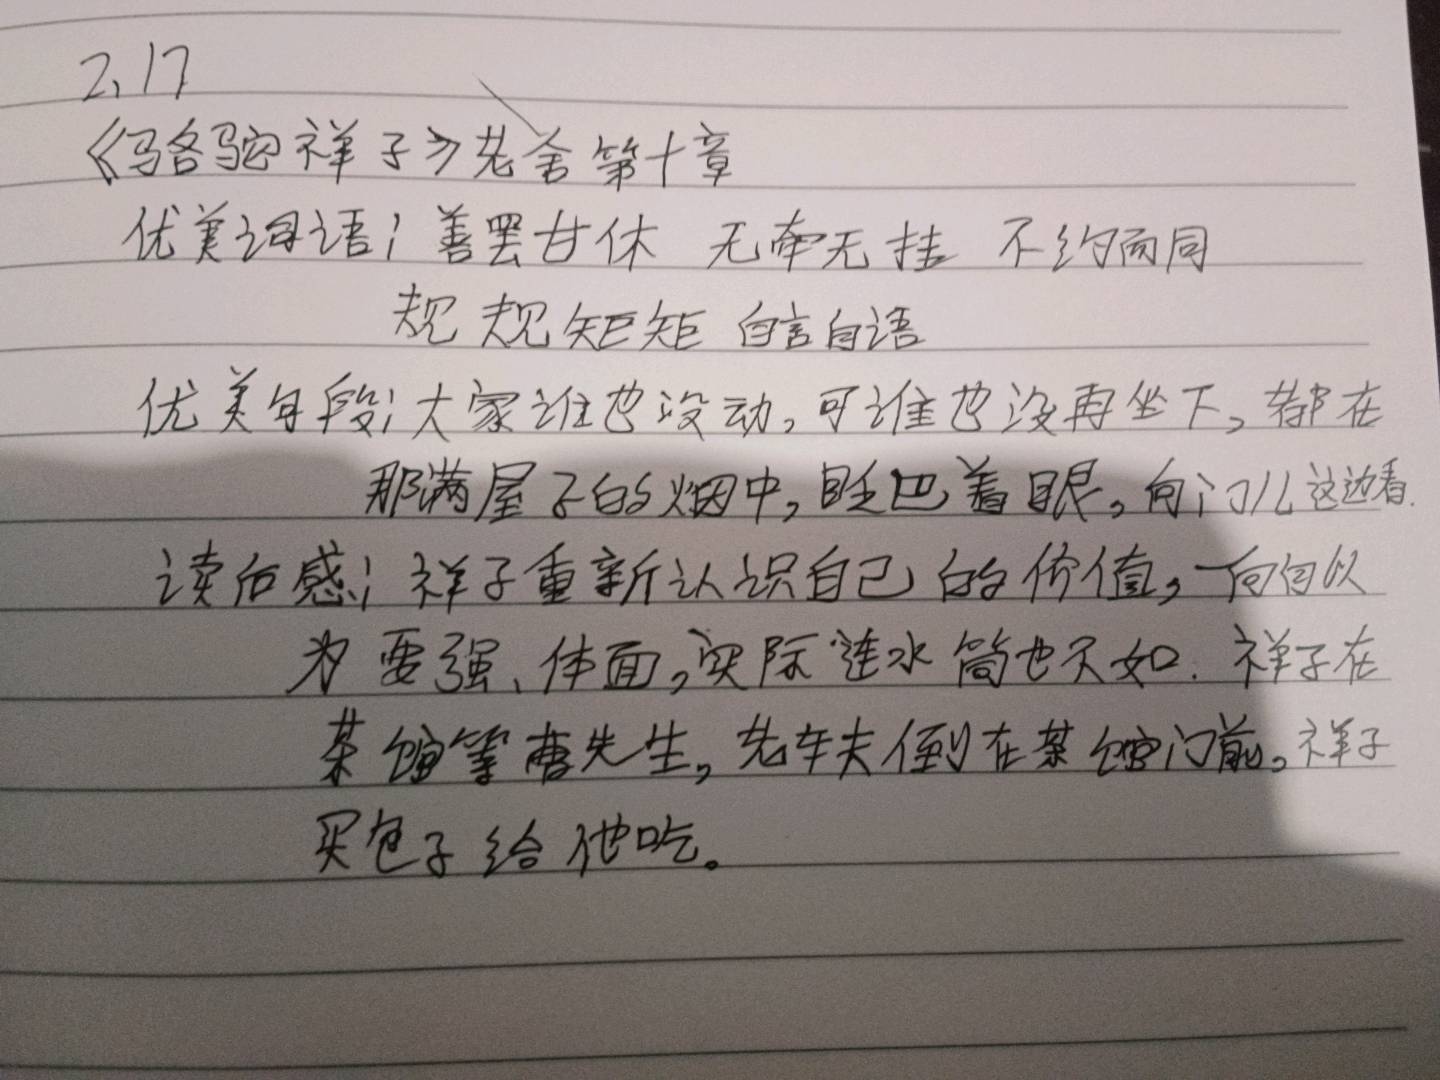 2.17
《骆驼祥子》老舍第十章
优美词语；善罢甘休 无牵无挂 不约而同
规规矩矩 自言自语
优美句段；大家谁也没动，可谁也没再坐下，都在
那满屋子的烟中，眨巴着眼，向门儿这边看.
读后感；祥子重新认识自己的价值，一向自以
为要强、体面，实际连水筒也不如.祥子在
茶馆等曹先生，老车夫倒在茶馆门前，祥子
买包子给他吃。